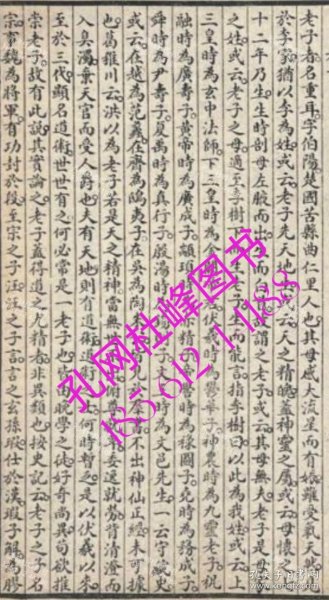 老子者名重耳字伯陽楚國苦縣曲仁里人也其母感大流星而有娠雖受氣天然
於李家猶以李為姓或云老子先天地生或云天之精魄蓋神靈之屬或云母懷
十二年乃生生時剖母左腋而出生而白首故謂之老子或云其母無夫老子是
之姓或云老子之母適至李樹下而生老子生而能言指李樹曰以此為我姓或云上
三皇時為玄中法師下三皇時為金闕帝君伏羲時為鬱華子神農時為九靈老子祝
融時為廣壽子黃帝時為廣成子顓頊時為赤精子帝嚳時為祿圖子堯時為務成子
舜時為尹壽子夏禹時為真行子殷湯時為子文王時為文邑先生一云守藏史
或云在越為范蠡在齊為鴟夷子在吳為陶朱出神仙正經未可據
也葛稚川云洪以為老子若是天之精神當無世卑委逸就勞背清澄而
入臭濁棄天官而受人爵也夫有天地則有道術道術何時暫乏是以伏羲以來
至於三代顯名道術世世有之何必常是一老子也皆由晚學之徒好奇尚異苟欲推
崇老子故有此說其實論之老子蓋得道之尤精者非異類也按史記云老子之子名
宗事魏為將軍有功封於段至宗之子汪汪之子言言之玄孫瑕仕於漢瑕子解為膠
孔网杜峰图书